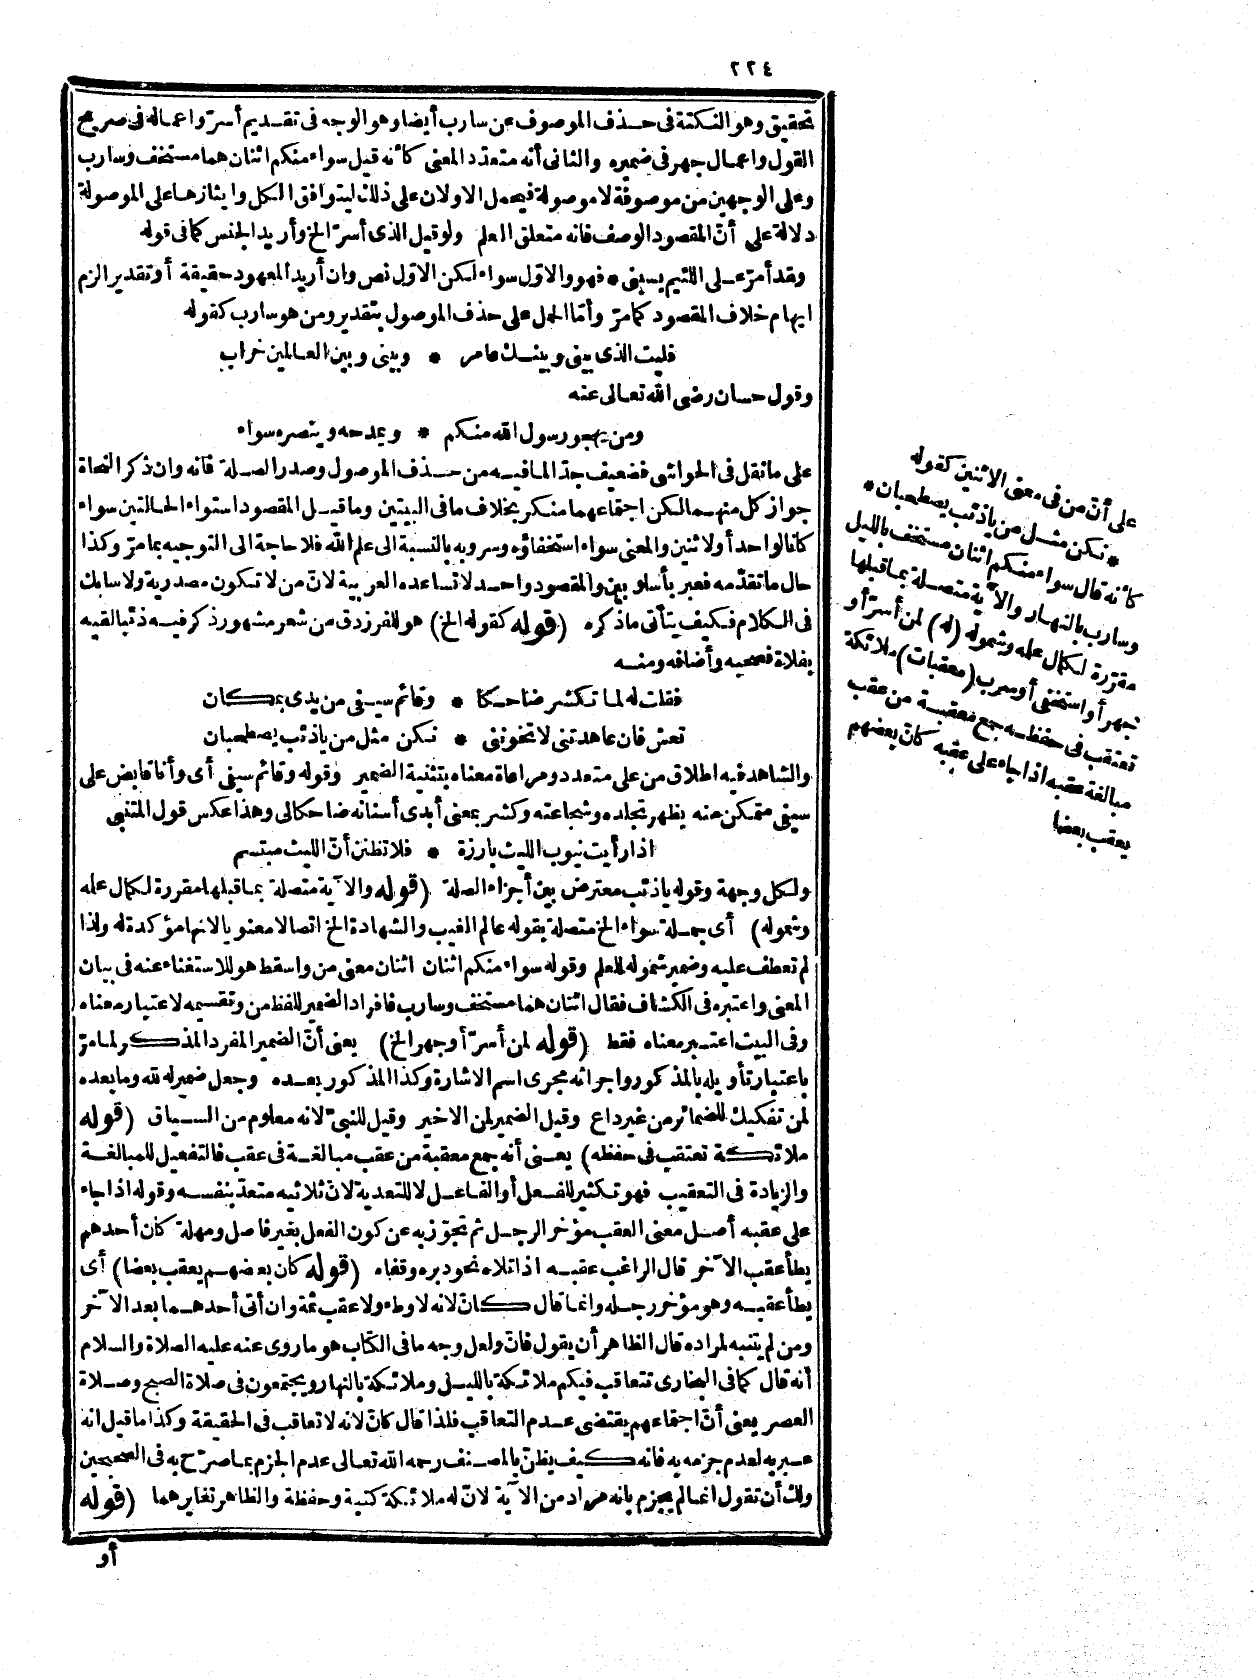 ٢٢٤
تحقيق وهو النكتة فى حذف الموصوف عن سارب أيضا وهو الوجه فى تقديم أسرّ واعماله فى صريح
القول واعمال جهر فى ضميره والثانى أنه متعدد المعنى كأنه قيل سواء منكم اثنان هما مستخف وسارب
وعلى الوجهين من موصوفة لا موصولة فيحمل الاولان على ذلك ليتوافق الكل وايثارها على الموصولة
دلالة على أنّ المقصود الوصف فانه متعلق العلم ولو قيل الذى أسرّ الخ وأريد الجنس كما فى قوله
ولقد أمرّ على اللئيم يسبنى * فهو والاوّل سواء لكن الاوّل نص وان أريد المعهود حقيقة أو تقدير الزم
ايهام خلاف المقصود كما مرّ وأمّا الحمل على حذف الموصول بتقدير ومن هو سارب كقوله
فليت الذى بينى وبينك عامر * وبينى وبين العالمين خراب
وقول حسان رضى الله تعالى عنه
ومن يهجو رسول الله منكم * ويمدحه وينصره سواء
على ما نقل فى الحواشى فضعيف جدّا لما فيه من حذف الموصول وصدر الصلة فانه وان ذكر النحاة
جواز كل منهما لكن اجتماعهما منكر بخلاف ما فى البيتين وما قيل المقصود استواء الحالتين سواء
كانا لواحد أولاثنين والمعنى سواء استخفاؤه وسروبه بالنسبة الى علم الله فلا حاجة الى التوجيه بما مرّ وكذا
حال ما تقدّمه فعبر بأسلوبين والمقصود واحد لا تساعده العربية لانّ من لا تكون مصدرية ولا سابك
فى الكلام فكيف يتأتى ما ذكره (قوله كقوله الخ) هو للفرزدق من شعر مشهور ذكر فيه ذئبا لقيه
بفلاة فصحبه وأضافه ومنه
فقلت له لما تكشر ضاحكا * وقائم سيفى من يدى بمكان
تعش فان عاهدتنى لا تخوننى * نكن مثل من ياذئب يصطحبان
والشاهد فيه اطلاق من على متعدد ومراعاة معناه بتثنية الضمير وقوله وقائم سيفى أى وأنا قابض على
سيفى متمكن منه يظهر تجلده وشجاعته وكشر بمعنى أبدى أسنانه ضاحكا لى وهذا عكس قول المتنبى
اذا رأيت نيوب الليث بارزة * فلا تظنن أنّ الليث مبتسم
ولكل وجهة وقوله ياذئب معترض بين أجزاء الصلة (قوله والآية متصلة بما قبلها مقررة لكمال علمه
وشموله) أى جملة سواء الخ متصلة بقوله عالم الغيب والشهادة الخ اتصالا معنويا لانها مؤكدة له ولذا
لم تعطف عليه وضمير شموله للعلم وقوله سواء منكم اثنان اثنان معنى من واسقط هو للاستغناء عنه فى بيان
المعنى واعتبره فى الكشاف فقال اثنان هما مستخف وسارب فافراد الضمير للفظ من وتقسيمه لاعتبار معناه
وفى البيت اعتبر معناه فقط (قوله لمن أسرّ أو جهر الخ) يعنى أنّ الضمير المفرد المذكر لما مرّ
باعتبار تأويله بالمذكور واجرائه مجرى اسم الاشارة وكذا المذكور بعده وجعل ضمير له لله وما بعده
لمن تفكيك للضمائر من غير داع وقيل الضمير لمن الاخير وقيل للنبىّ لانه معلوم من السياق (قوله
ملائكة تعتقب فى حفظه) يعنى أنه جمع معقبة من عقب مبالغة فى عقب فالتفعيل للمبالغة
والزيادة فى التعقيب فهو تكثير للفعل أو الفاعل لا للتعدية لانّ ثلاثيه متعدّ بنفسه وقوله اذا جاء
على عقبه أصل معنى العقب مؤخر الرجل ثم تجوّز به عن كون الفعل بغير فاصل ومهلة كأن أحدهم
يطأ عقب الآخر قال الراغب عقبه اذا تلاه نحو دبره وقفاه (قوله كان بعضهم يعقب بعضا) أى
يطأ عقبه وهو مؤخر رجله وانما قال كانّ لانه لا وطء ولا عقب ثمة وان أتى أحدهما بعد الآخر
ومن لم يتنبه لمراده قال الظاهر أن يقول فانّ ولعل وجه ما فى الكتاب هو ما روى عنه عليه الصلاة والسلام
أنه قال كما فى البخارى تتعاقب فيكم ملائكة بالليل وملائكة بالنهار ويجتمعون فى صلاة الصبح وصلاة
العصر يعنى أنّ اجتماعهم يقتضى عدم التعاقب فلذا قال كانّ لانه لا تعاقب فى الحقيقة وكذا ما قيل انه
عبر به لعدم جزمه به فانه كيف يظنّ بالمصنف رحمه الله تعالى عدم الجزم بما صرّح به فى الصحيحين
ولك أن تقول انما لم يجزم بانه مراد من الآية لانّ له ملائكة كتبة وحفظة والظاهر تغايرهما (قوله
أو
على أنّ من فى معنى الاثنين كقوله
* نكن مثل من ياذئب يصطحبان *
كأنه قال سواء منكم اثنان مستخف بالليل
وسارب بالنهار والآية متصلة بما قبلها
مقرّرة لكمال علمه وشموله (له) لمن أسرّ أو
جهر أو استخفى أو سرب (معقبات) ملائكة
تعتقب فى حفظه جمع معقبة من عقب
مبالغة عقبه اذا جاء على عقبه كانّ بعضهم
يعقب بعضا